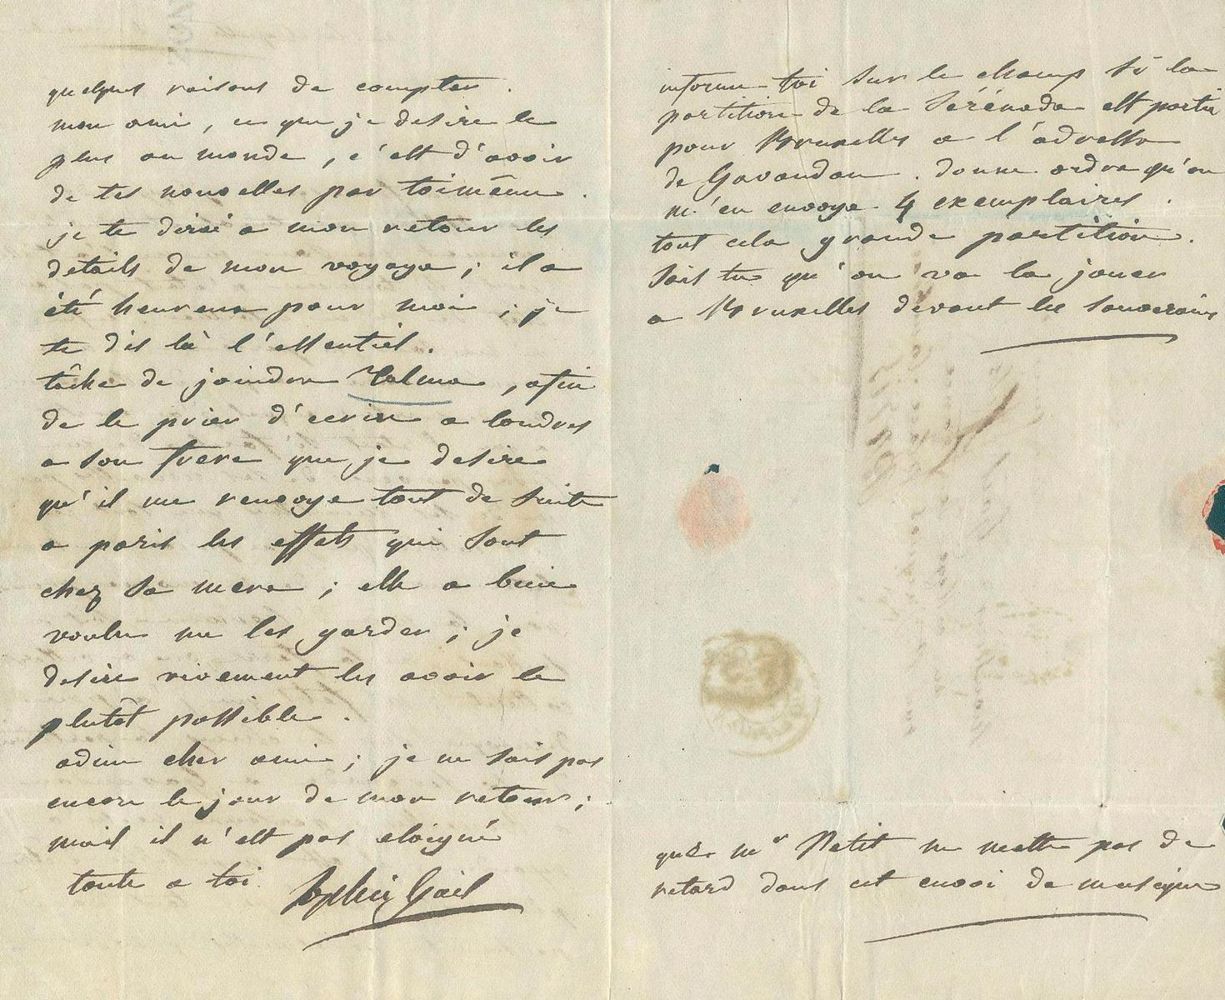 quelques raisons de compter.
mon ami, ce que je desire le
plus au monde, c'est d'avoir
de tes nouvelles par toimême.
je te dirai a mon retour les
details de mon voyage ; il a
été heureux pour moi ; je
te dis là l'essentiel.
tâche de joindre Talma, afin
de le prier d'ecrire a londres
a son frere que je desire
qu'il me renvoye tout de suite
a paris les effets qui sont
chez sa mere ; elle a bien
voulu me les garder ; je
desire vivement les avoir le
plutôt possible.
adieu cher ami ; je ne sais pas
encore le jour de mon retour ;
mais il n'est pas eloigné
toute a toi.
Sophie Gail
informe toi sur le champ si la
partition de la Sérénade est partie
pour Bruxelles a l'adresse
de Gavaudan. donne ordre qu'on
m'en envoye 4 exemplaires.
tout cela grande partition.
sais tu qu'on va la jouer
a Bruxelles devant les souverains
que mr Petit ne mette pas de
retard dans cet envoi de musique